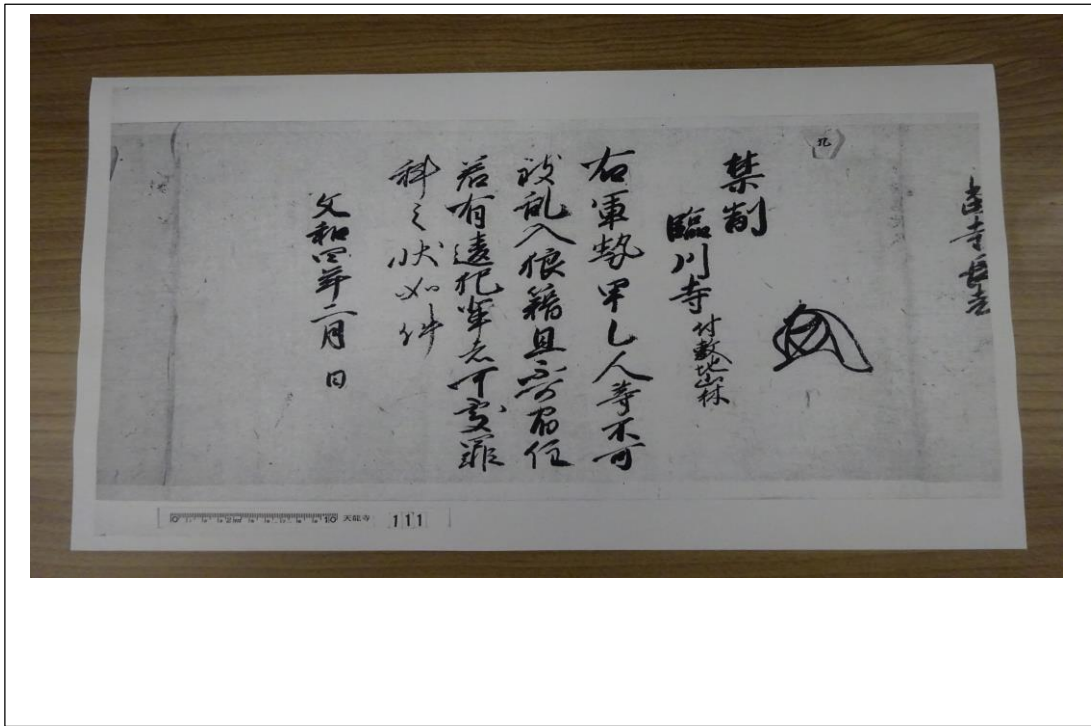 当寺長老
禁制
臨川寺付敷地山林
右軍勢甲乙人等不可
乱入狼藉且不可住
若有違犯輩者可處罪
科之状如件
文和四年二月 日
天龍寺 111